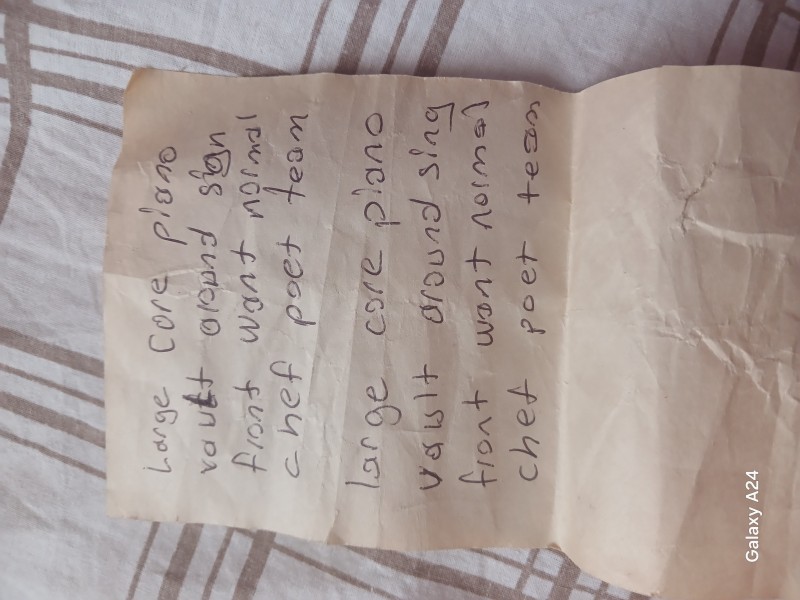 Large core piano
vault around sign
front want normal
chef poet team
large core piano
vault around sing
front want normal
chef poet team
Galaxy A24